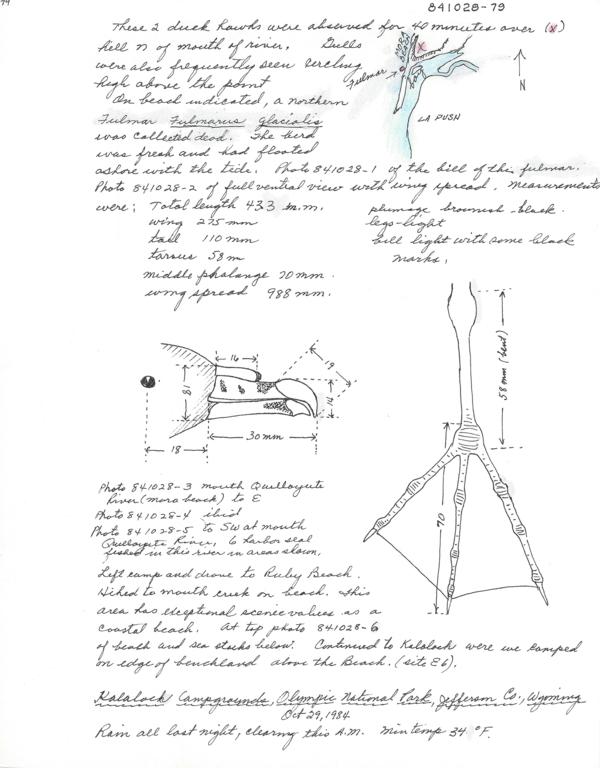 841028-79
These 2 duck hawks were observed for 40 minutes over (x)
hill N of mouth of river. Gulls
were also frequently seen circling
high above the point
On beach indicated, a northern
Fulmar Fulmarus glacialis
was collected dead. The bird
was fresh and had floated
ashore with the tide. Photo 841028-1 of the bill of this fulmar.
Photo 841028-2 of full ventral view with wing spread. Measurements
were: Total length 433 m.m.
wing 275 mm
tail 110 mm
tarsus 58 m
middle phalange 70 mm.
wing spread 988 mm.
plumage brownish-black.
legs-light
bill light with some black
marks.
MORA BEACH
X
Fulmar
N
LA PUSH
16
19
18
14
30 mm
18
58 mm (bend)
70
Photo 841028-3 mouth Quilloyute
River (mora beach) to E
Photo 841028-4 ibid
Photo 841028-5 to SW at mouth
Quilloyute River, 6 harbor seal
fished in this river in areas shown.
Left camp and drove to Ruby Beach.
Hiked to mouth creek on beach. This
area has exceptional scenic values as a
coastal beach. At top photo 841028-6
of beach and sea stacks below. Continued to Kalalock were we camped
on edge of benchland above the Beach. (site E6).
Kalalock Campgrounds, Olympic National Park, Jefferson Co., Wyoming
Oct 29, 1984
Rain all last night, clearing this A.M. Min temp 34 °F.